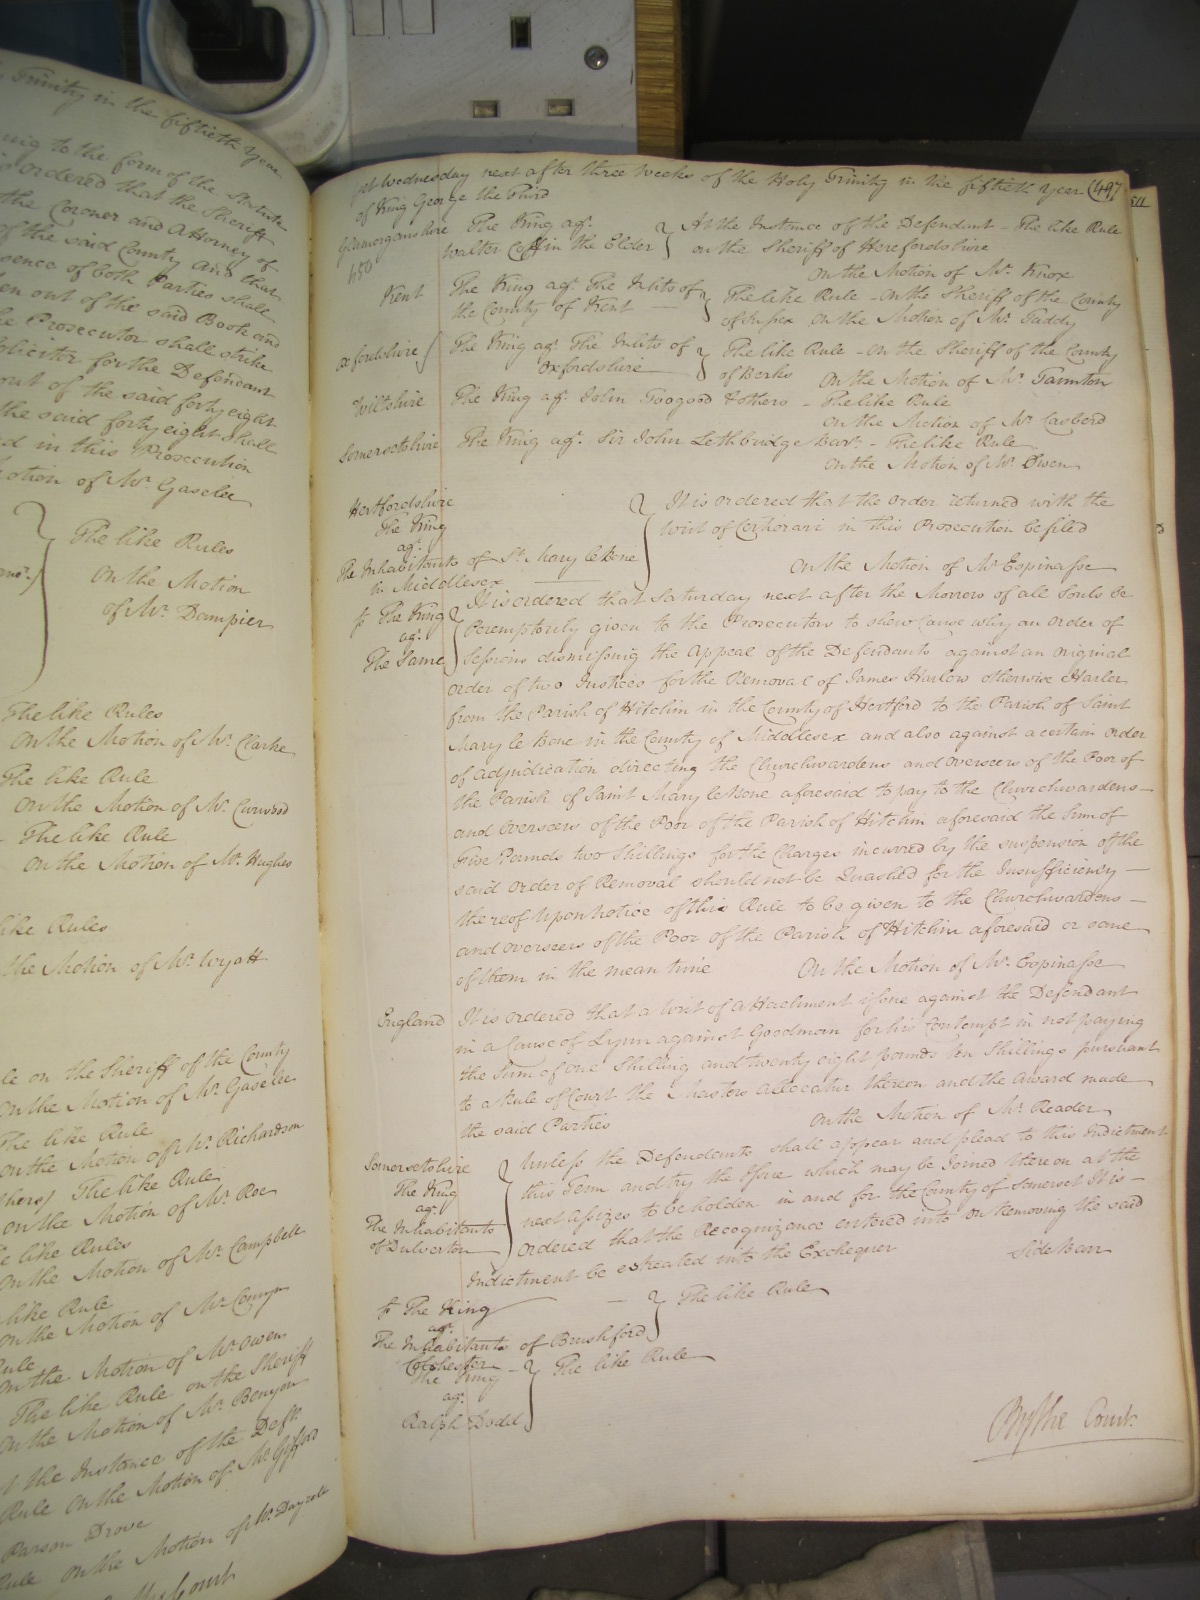 Trinity in the fiftieth year
to the form of the Statute
ordered that the Sheriff
the Coroner and Attorney of
of the said County and that
sence of both Parties shall
en out of the said Book and
he Prosecutor shall strike
olicitor for the Defendant
out of the said forty eight
the said forty eight shall
d in this Prosecution
otion of Mr. Gaselee
The like Rules
On the Motion
of Mr. Dampier
The like Rules
On the Motion of Mr. Clarke
The like Rule
On the Motion of Mr. Curwood
The like Rule
On the Motion of Mr. Hughes
like Rules
the Motion of Mr. Wyatt
le on the Sheriff of the County
On the Motion of Mr. Gaselee
The like Rule
On the Motion of Mr. Richardson
thers) The like Rule
On the Motion of Mr. Roe
e like Rules
On the Motion of Mr. Campbell
like Rule
On the Motion of Mr. Comyn
Rule
On the Motion of Mr. Owen
The like Rule on the Sheriff
On the Motion of Mr. Benyon
t the Instance of the Deft.
Rule On the Motion of Mr. Gifford
Parson Drove
Rule On the Motion of Mr. Dayrell
By the Court
yet Wednesday next after three Weeks of the Holy Trinity in the fiftieth Year (497
of King George the Third
511
Glamorganshire The King agt. At the Instance of the Defendant - The like Rule
450 Walter Coffin the Elder } on the Sheriff of Herefordshire
On the Motion of Mr. Knox
Kent The King agt. The Inhts of } The like Rule - On the Sheriff of the County
the County of Kent of Sussex On the Motion of Mr. Taddy
Oxfordshire The King agt. The Inhts of } The like Rule - On the Sheriff of the County
Oxfordshire of Berks On the Motion of Mr. Taunton
Wiltshire The King agt. John Toogood & others - The like Rule
On the Motion of Mr. Casberd
Somersetshire The King agt. Sir John Lethbridge Bart. - The like Rule
On the Motion of Mr. Owen
Hertfordshire
The King
agt.
The Inhabitants of St. Mary le bone
in Middlesex
It is ordered that the order returned with the
Writ of Certiorari in this Prosecution be filed
On the Motion of Mr. Espinasse
The King
agt.
The Same
It is ordered that Saturday next after the Morrow of all Souls be
Peremptorily given to the Prosecutors to shew Cause why an Order of
Sessions dismissing the Appeal of the Defendants against an Original
Order of two Justices for the Removal of James Harlow otherwise Harler
from the Parish of Hitchin in the County of Hertford to the Parish of Saint
Mary le Bone in the County of Middlesex and also against a certain Order
of adjudication directing the Churchwardens and Overseers of the Poor of
the Parish of Saint Mary le Bone aforesaid to pay to the Churchwardens
and Overseers of the Poor of the Parish of Hitchin aforesaid the Sum of
Five Pounds two Shillings for the Charges incurred by the suspension of the
said Order of Removal should not be Quashed for the Insufficiency
thereof Upon Notice of this Rule to be given to the Churchwardens
and Overseers of the Poor of the Parish of Hitchin aforesaid or some
of them in the mean time On the Motion of Mr. Espinasse
England It is ordered that a Writ of Attachment issue against the Defendant
in a Cause of Lynn against Goodman for his Contempt in not paying
the Sum of One Shilling and twenty eight pounds ten Shillings pursuant
to a Rule of Court the Masters Allocatur thereon and the Award made
the said Parties On the Motion of Mr. Reader
Somersetshire
The King
agt.
The Inhabitants
of Dulverton
Unless the Defendants shall appear and plead to this Indictment
this Term and try the Issue which may be Joined thereon at the
next Assizes to be holden in and for the County of Somerset It is
Ordered that the Recognizance entered into On Removing the said
Indictment be estreated into the Exchequer Side Bar
The King
agt.
The Inhabitants of Brushford } The like Rule
Colchester
The King
agt.
Ralph Dodd } The like Rule
By the Court